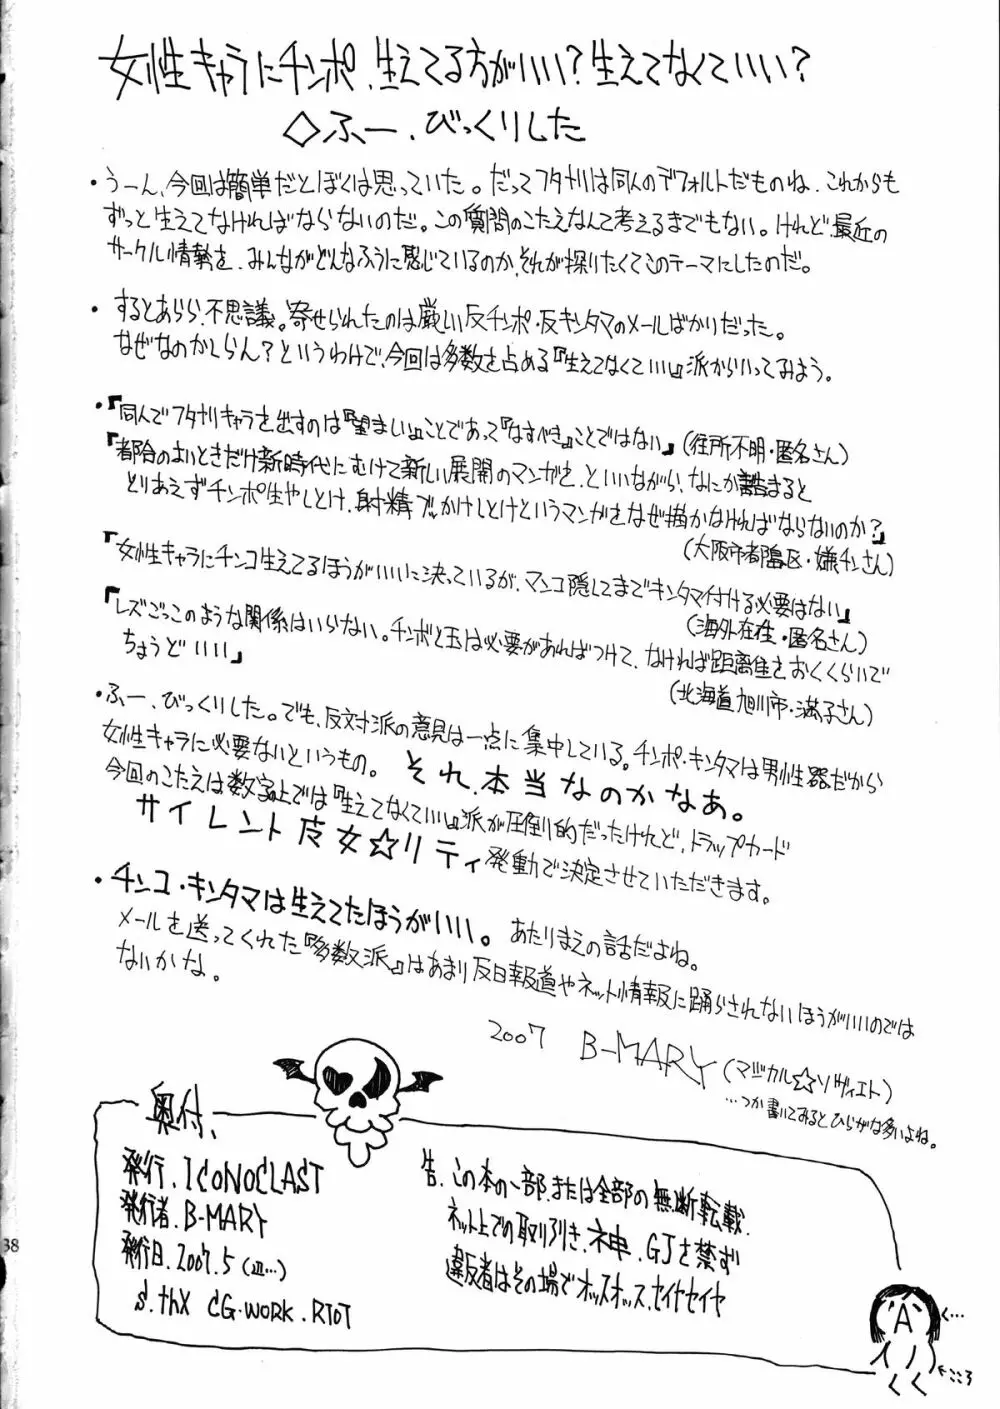 女性キャラにチンポ、生えてる方がいい?生えてなくていい?
◇ふー、びっくりした
・うーん、今回は簡単だとぼくは思っていた。だってフタナリは同人のデフォルトだものね、これからも
ずっと生えてなければならないのだ。この質問のこたえなんて考えるまでもない。けれど、最近の
サークル情勢を、みんながどんなふうに感じているのか、それが探りたくてこのテーマにしたのだ。
・するとあらら、不思議。寄せられたのは厳しい反チンポ・反キンタマのメールばかりだった。
なぜなのかしらん?というわけで、今回は多数を占める『生えてなくていい』派からいってみよう。
・『同人でフタナリキャラを出すのは『望ましい』ことであって『なすべき』ことではない』(住所不明・匿名さん)
『都合のよいときだけ新時代にむけて新しい展開のマンガを、といいながら、なにか詰まると
とりあえずチンポ生やしとけ、射精でぶっかけしとけというマンガをなぜ描かなければならないのか?』
(大阪市都島区・嫌チンさん)
『女性キャラにチンコ生えてるほうがいいに決っているが、マンコ隠してまでキンタマ付ける必要はない』
(海外在住・匿名さん)
『レズごっこのような関係はいらない。チンポと玉は必要があればつけて、なければ距離をおくくらいで
ちょうどいい』
(北海道旭川市・満子さん)
・ふー、びっくりした。でも、反対派の意見は一点に集中している。チンポ・キンタマは男性器だから
女性キャラに必要ないというもの。それ、本当なのかなあ。
今回のこたえは数字上では『生えてなくていい』派が圧倒的だったけれど、トラップカード
サイレント魔女☆リティ発動で決定させていただきます。
・チンコ・キンタマは生えてたほうがいい。あたりまえの話だよね。
メールを送ってくれた『多数派』はあまり反日報道やネット情報に踊らされないほうがいいのでは
ないかな。
2007 B-MARY(マジカル☆ソヴィエト)
…つか書いてみるとひらがな多いよね。
奥付、
発行.ICONOCLAST
発行者.B-MARY
発行日.2007.5
S.thX CG-WORK.RIOT
告、この本の一部、または全部の無断転載、
ネット上での取り引き、ネ申、GJを禁ず
違反者はその場でオッスオッス、セイヤセイヤ
A
く…
イノ
くく
←こころ
38